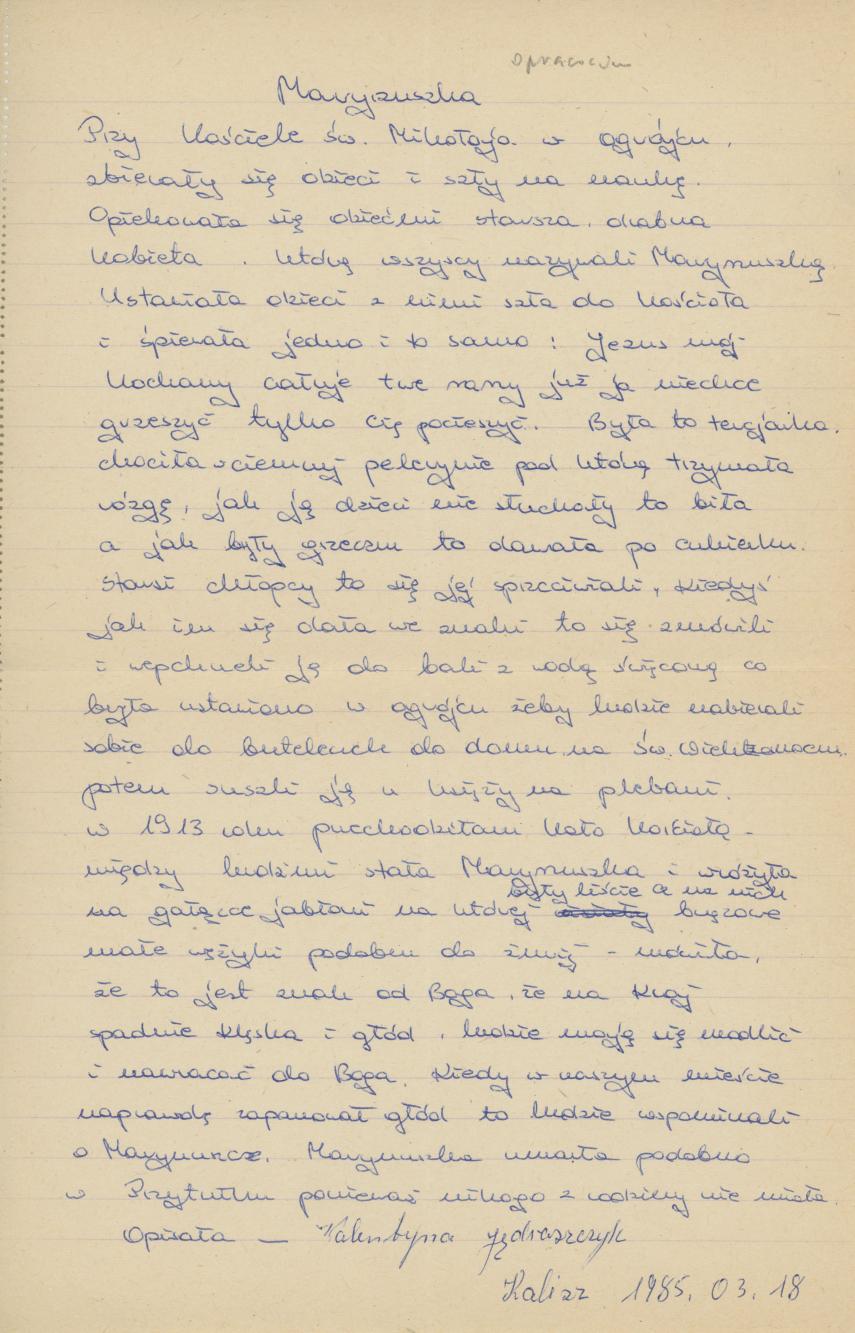 opracować
Marynuszka
Przy Kościele św. Mikołaja w ogrójcu,
zbierały się dzieci i szły na naukę.
Opiekowała się dziećmi starsza, drobna
kobieta. Którą wszyscy nazywali Marynuszką
Ustawiała dzieci z nimi szła do kościoła
i śpiewała jedno i to samo: Jezus mój
kochany całuje twe rany już ja niechce
grzeszyć tylko cię pocieszyć. Była to tercjarka,
chodziła w ciemnej pelerynie pod którą trzymała
rózgę, jak ją dzieci nie słuchały to biła
a jak były grzeczne to dawała po cukierku.
starsi chłopcy to się jej sprzeciwiali, kiedyś
jak im się dała we znaki to się zmówili
i wepchneli ją do bali z wodą święconą co
była ustawiono w ogrójcu żeby ludzie nabierali
sobie do butelench do domu na św. Wielkanocne.
potem suszli ją u księży na plebani.
w 1913 roku przechodziłam koło kościoła -
między ludźmi stała Marynuszka i wróżyła
były liście a na nich
na gałązce jabłoni na której brązowe
małe wężyki podobne do żmij - mówiła,
że to jest znak od Boga, że na kraj
spadnie klęska i głód, ludzie mają się modlić
i nawracać do Boga. Kiedy w naszym mieście
naprawdę zapanował głód to ludzie wspominali
o Marynuszce. Marynuszka umarła podobno
w Przytułku ponieważ nikogo z rodziny nie miała.
Opisała — Walentyna Jędraszczyk
Kalisz 1985.03.18